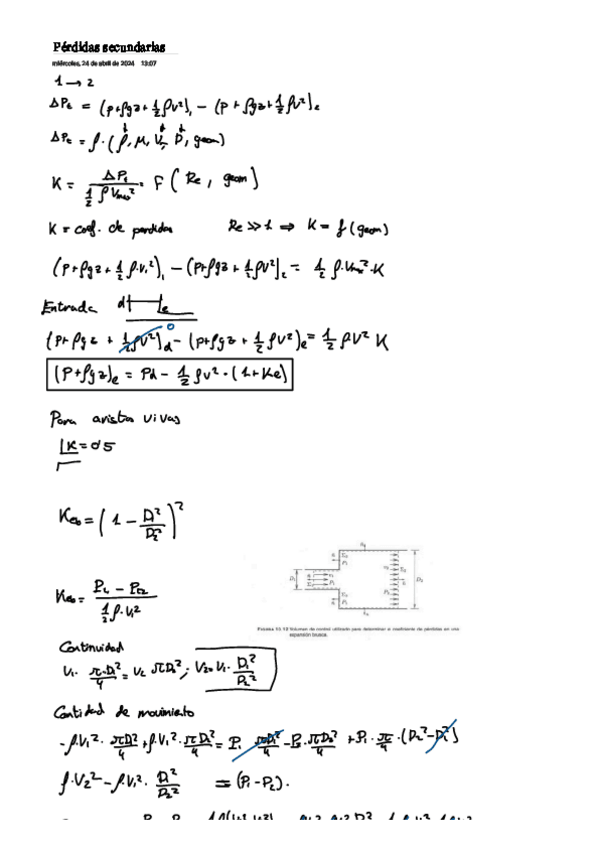 Pérdidas secundarias
miércoles, 24 de abril de 2024 13:07
1 → 2
ΔPt = (p+ρgz+½ρv²)₁ − (p+ρgz+½ρv²)₂
ΔPt = f·(ρ, μ, V, D, geom)
K = ΔPt / ½ρVmax² = F (Re, geom)
K = coef. de perdidas Re >> 1 ⇒ K = f(geom)
(p+ρgz+½ρ·v₁²)₁ − (p+ρgz+½ρv²)₂ = ½ρ·Vmax²·K
Entrada d e
(p+ρgz + ½ρv²)d − (p+ρgz + ½ρv²)e = ½ρV² K
0
(p+ρgz)e = Pd − ½ρv²·(1+Ke)
Para aristas vivas
K = 0'5
= (1 − D₁²/D₂²)²
= / ½ρ·V₁²
FIGURA 10.13 Volumen de control utilizado para determinar el coeficiente de pérdidas en una
expansión brusca.
Continuidad
V₁· π·D₁²/4 = V₂ πD₂²; V₂ = V₁· D₁²/D₂²
Cantidad de movimiento
−ρ·V₁²· πD₁²/4 + ρ·V₂²· πD₂²/4 = P₁ πD₁²/4 − P₂· πD₂²/4 + P₁· π/4 ·(D₂²−D₁²)
ρ·V₂² − ρ·V₁²· D₁²/D₂² = (P₁−P₂).